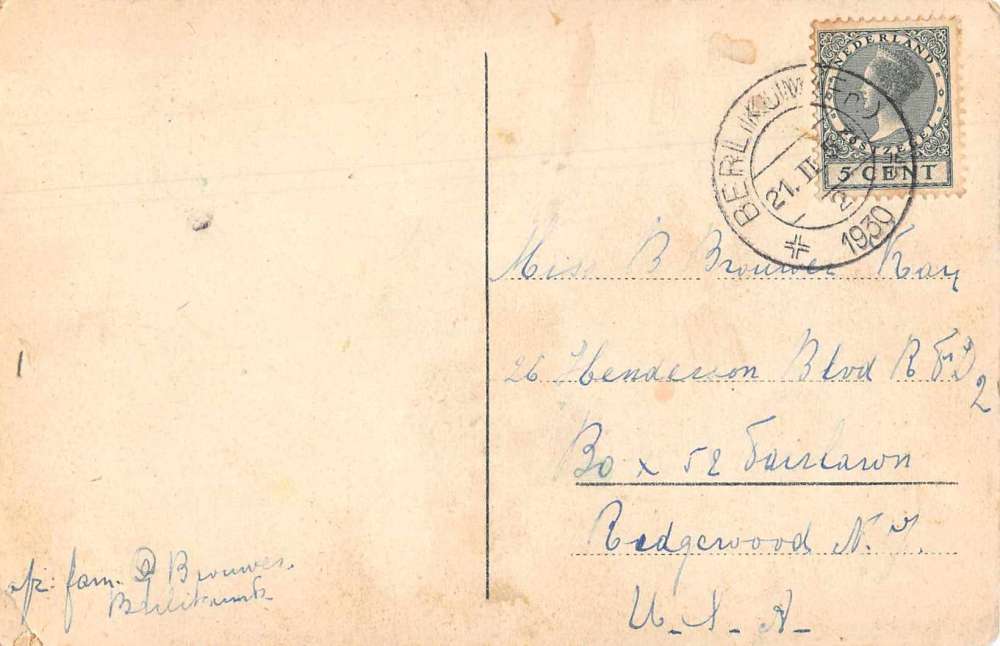 NEDERLAND
POSTZEGEL
5 CENT
BERLIKUM
21. II
12
1930
Miss B Brouwer Kay
26 Henderson Blvd R F D 2
Box 52 Fairlawn
Ridgewood N. J.
U. S. A.
afz: fam. Brouwer.
Berlikum